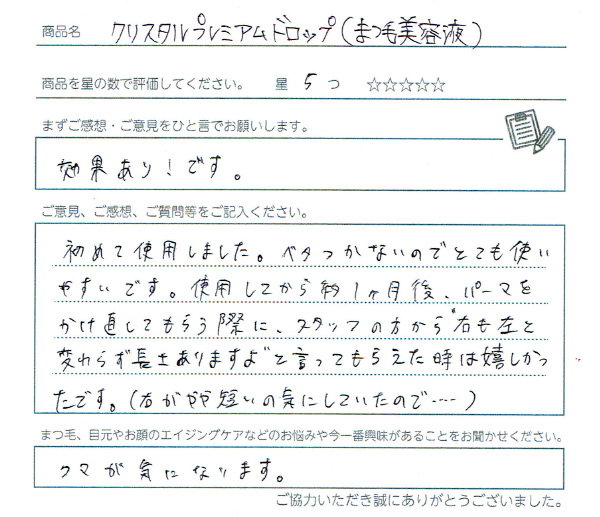 商品名 クリスタルプレミアムドロップ(まつ毛美容液)
商品を星の数で評価してください。 星 5 つ ☆☆☆☆☆
まずご感想・ご意見をひと言でお願いします。
効果あり!です。
ご意見、ご感想、ご質問等をご記入ください。
初めて使用しました。ベタつかないのでとても使い
やすいです。使用してから約1ヶ月後、パーマを
かけ直してもらう際に、スタッフの方から"右も左と
変わらず長さありますよ"と言ってもらえた時は嬉しかっ
たです。(右がやや短いの気にしていたので……)
まつ毛、目元やお顔のエイジングケアなどのお悩みや今一番興味があることをお聞かせください。
クマが気になります。
ご協力いただき誠にありがとうございました。